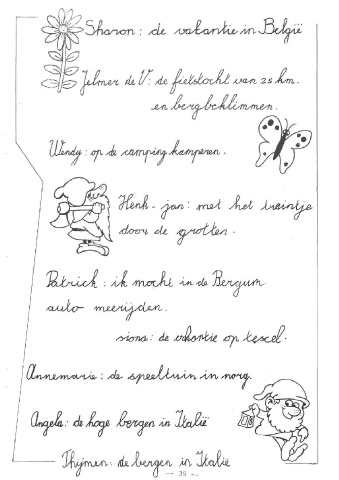 Sharon: de vakantie in België
Jelmer de V: de fietstocht van 25 km.
en bergbeklimmen.
Wendy: op de camping kamperen.
Henk-jan: met het treintje
door de grotten.
Patrick: ik mocht in de Bergum
auto meerijden.
siona: de vakantie op texel.
Annemarie: de speeltuin in norg.
Angela: de hoge bergen in Italië
Thijmen: de bergen in Italië
-- 35 --